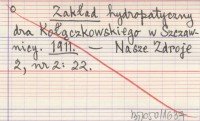 Zakład hydropatyczny
dra Kołączkowskiego w Szczaw-
nicy. 1911. — Nasze Zdroje
2, nr 2: 22.